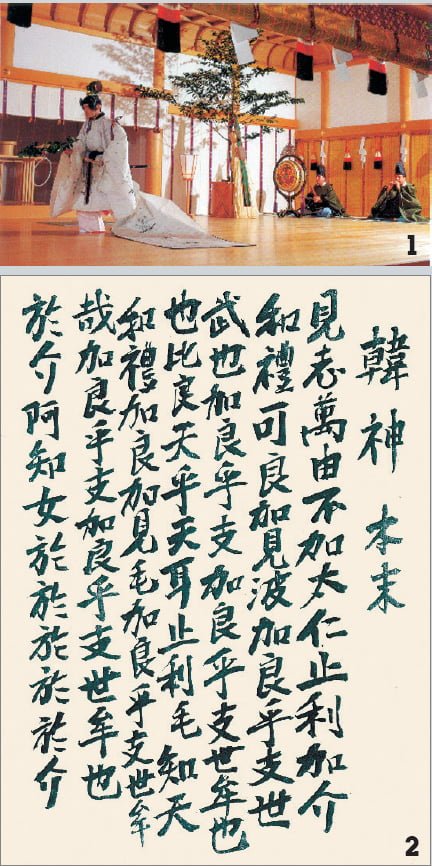 1
韓神 本末
見志萬由不加太仁止利加介
和禮可良加見波加良乎支世
武也加良乎支加良乎支世牟也
也比良天乎天耳止利毛知天
和禮加良加見毛加良乎支世牟
哉加良乎支加良乎支世牟也
於介阿知女於於於於於介
2